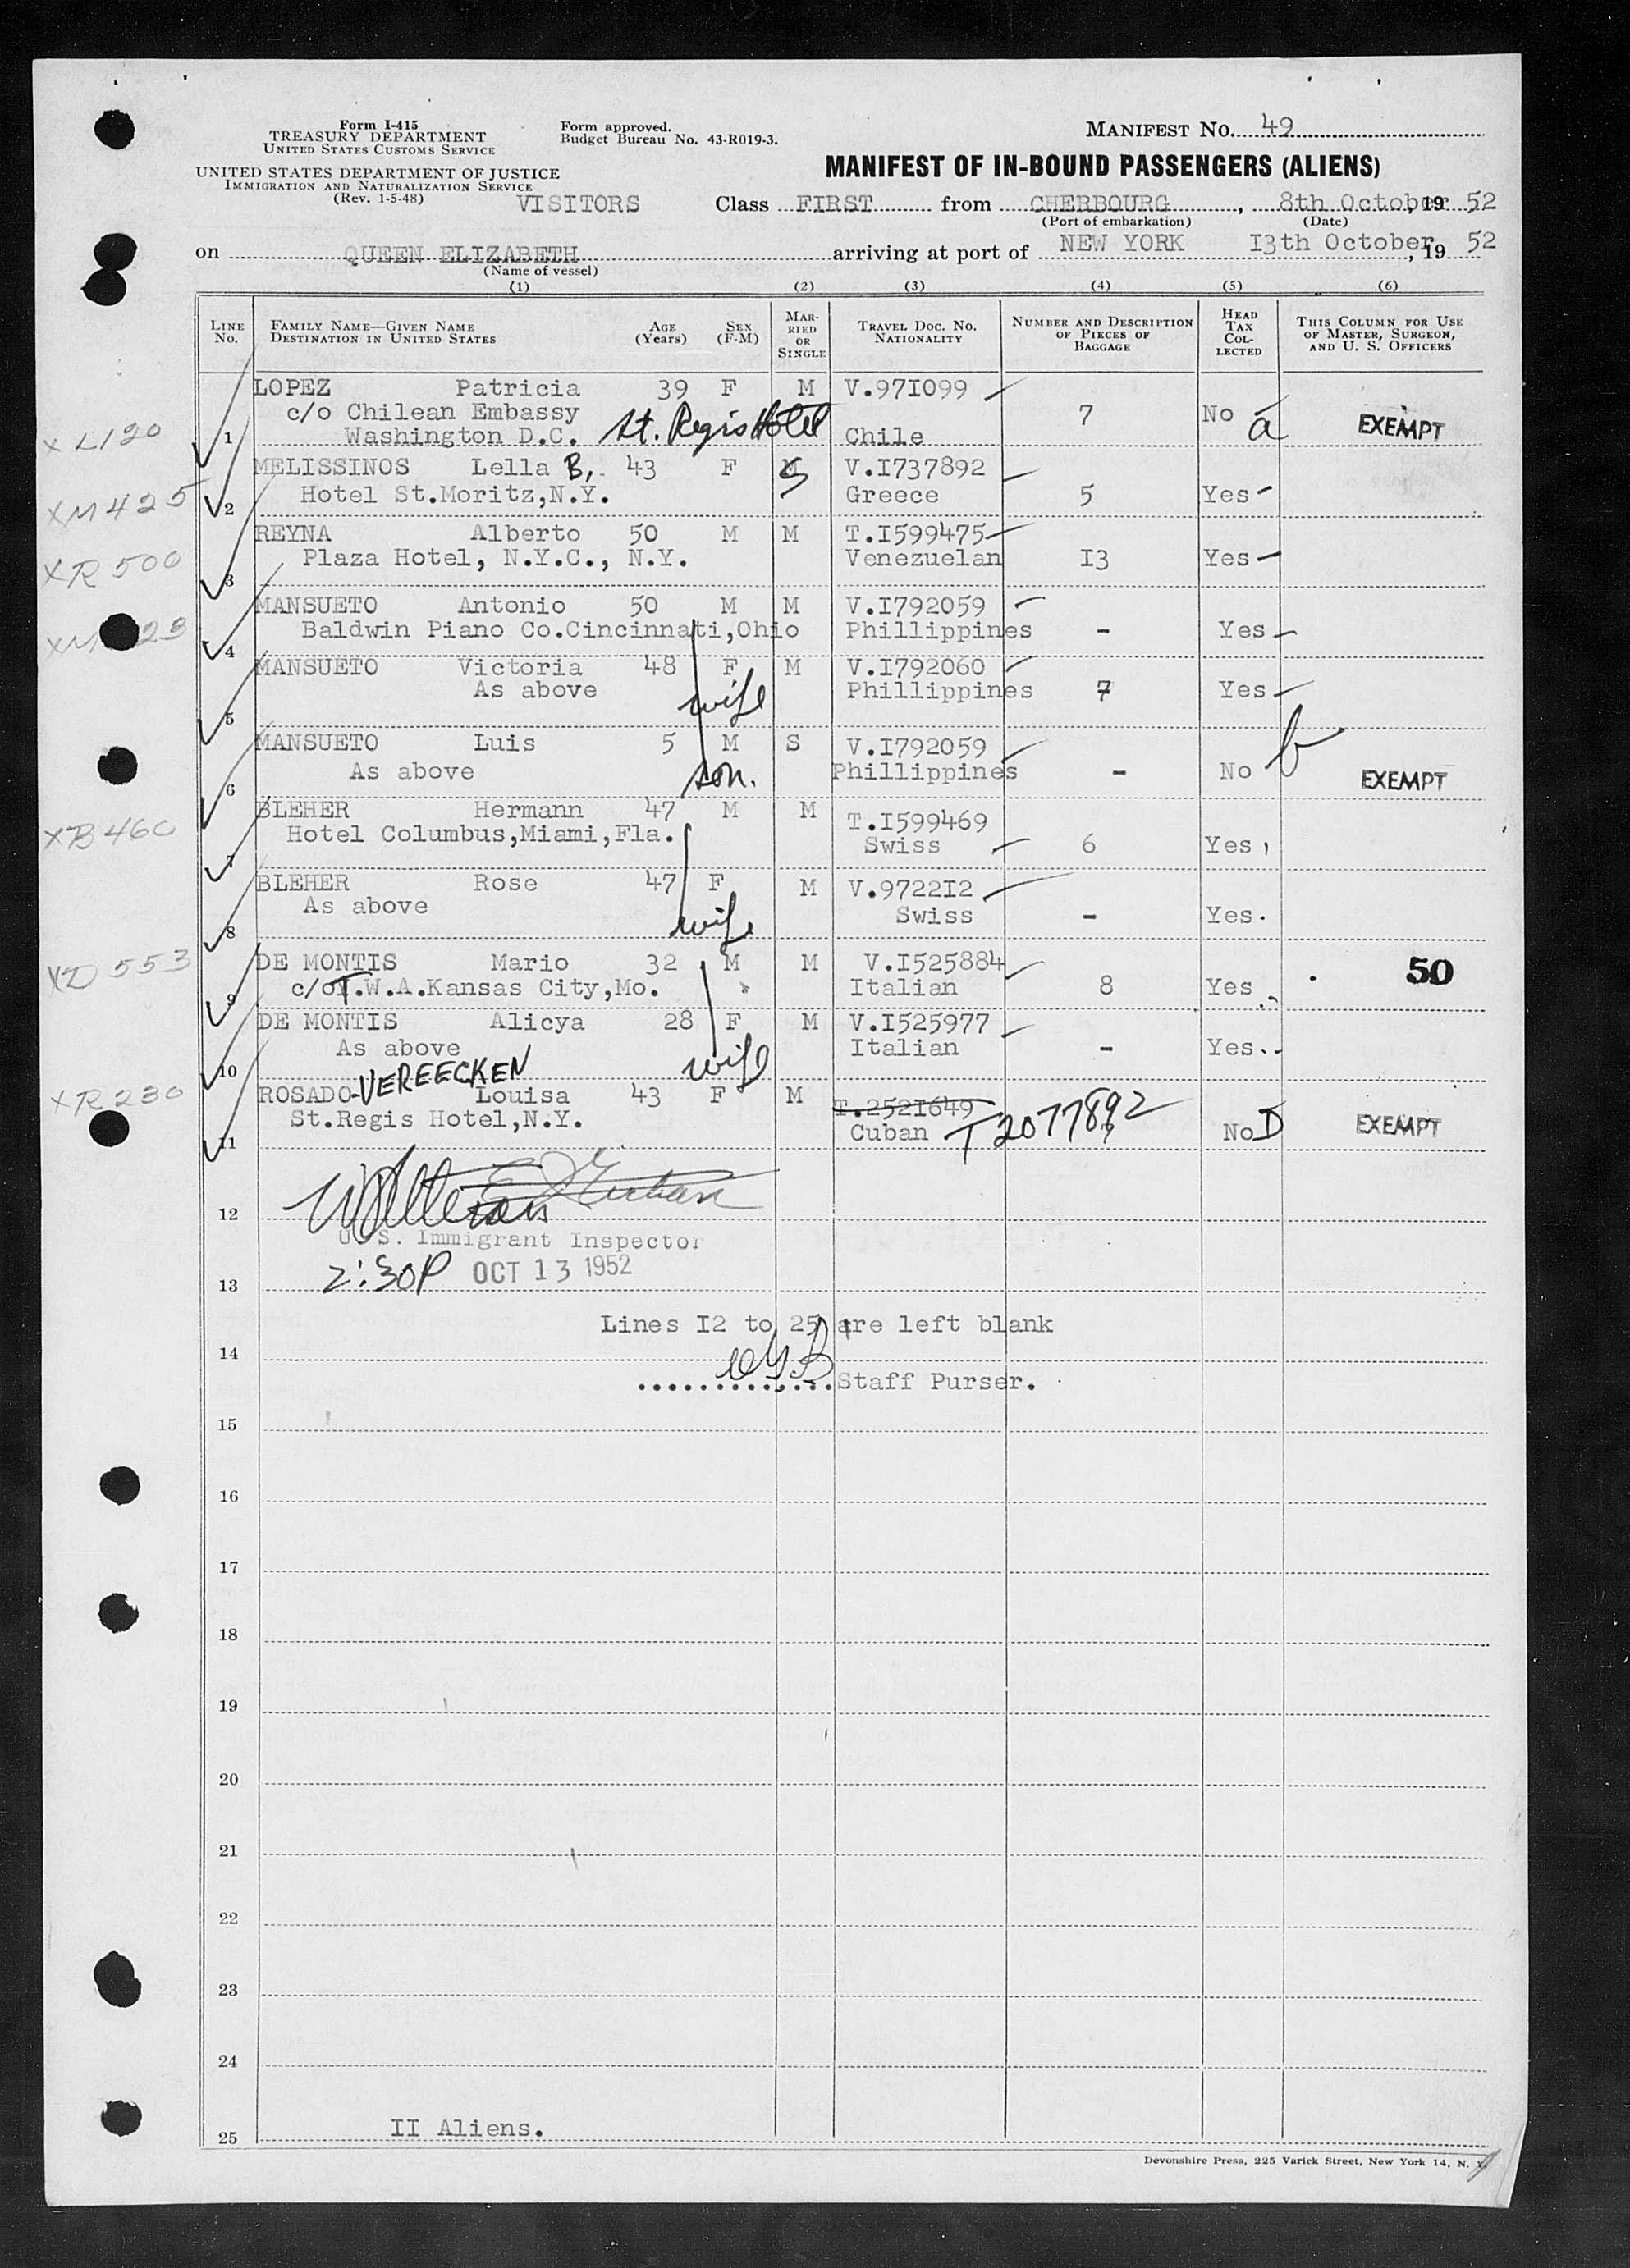 Form I-415
TREASURY DEPARTMENT
UNITED STATES CUSTOMS SERVICE
UNITED STATES DEPARTMENT OF JUSTICE
IMMIGRATION AND NATURALIZATION SERVICE
(Rev. 1-5-48)
Form approved.
Budget Bureau No. 43-R019-3.
MANIFEST No. 49
MANIFEST OF IN-BOUND PASSENGERS (ALIENS)
VISITORS Class FIRST from CHERBOURG, 8th October, 19 52
(Port of embarkation) (Date)
on QUEEN ELIZABETH arriving at port of NEW YORK 13th October, 19 52
(Name of vessel)
(1) (2) (3) (4) (5) (6)
LINE No. FAMILY NAME—GIVEN NAME DESTINATION IN UNITED STATES AGE (Years) SEX (F-M) MARRIED OR SINGLE TRAVEL DOC. NO. NATIONALITY NUMBER AND DESCRIPTION OF PIECES OF BAGGAGE HEAD TAX COLLECTED THIS COLUMN FOR USE OF MASTER, SURGEON, AND U. S. OFFICERS
LOPEZ Patricia 39 F M V.971099
c/o Chilean Embassy 7 No a EXEMPT
x L120 1 Washington D.C. St. Regis Hotel Chile
MELISSINOS Lella B, 43 F S V.I737892
XM425 2 Hotel St.Moritz,N.Y. Greece 5 Yes
REYNA Alberto 50 M M T.I599475
XR500 3 Plaza Hotel, N.Y.C., N.Y. Venezuelan 13 Yes
MANSUETO Antonio 50 M M V.I792059
4 Baldwin Piano Co.Cincinnati,Ohio Phillippines - Yes
MANSUETO Victoria 48 F M V.I792060
5 As above wife Phillippines 7 Yes
MANSUETO Luis 5 M S V.I792059
6 As above son. Phillippines - No b EXEMPT
BLEHER Hermann 47 M M T.I599469
XB460 7 Hotel Columbus,Miami,Fla. Swiss 6 Yes
BLEHER Rose 47 F M V.972212
8 As above wife Swiss - Yes.
DE MONTIS Mario 32 M M V.I525884 50
XD 553 9 c/o T.W.A.Kansas City,Mo. Italian 8 Yes
DE MONTIS Alicya 28 F M V.I525977
10 As above wife Italian - Yes..
ROSADO-VEREECKEN Louisa 43 F M T.2521649
XR230 11 St.Regis Hotel,N.Y. Cuban T2077892 No D EXEMPT
12
U.S. Immigrant Inspector
13 2:30P OCT 13 1952
Lines I2 to 25 are left blank
14
.............Staff Purser.
15
16
17
18
19
20
21
22
23
24
25 II Aliens.
Devonshire Press, 225 Varick Street, New York 14, N. Y.